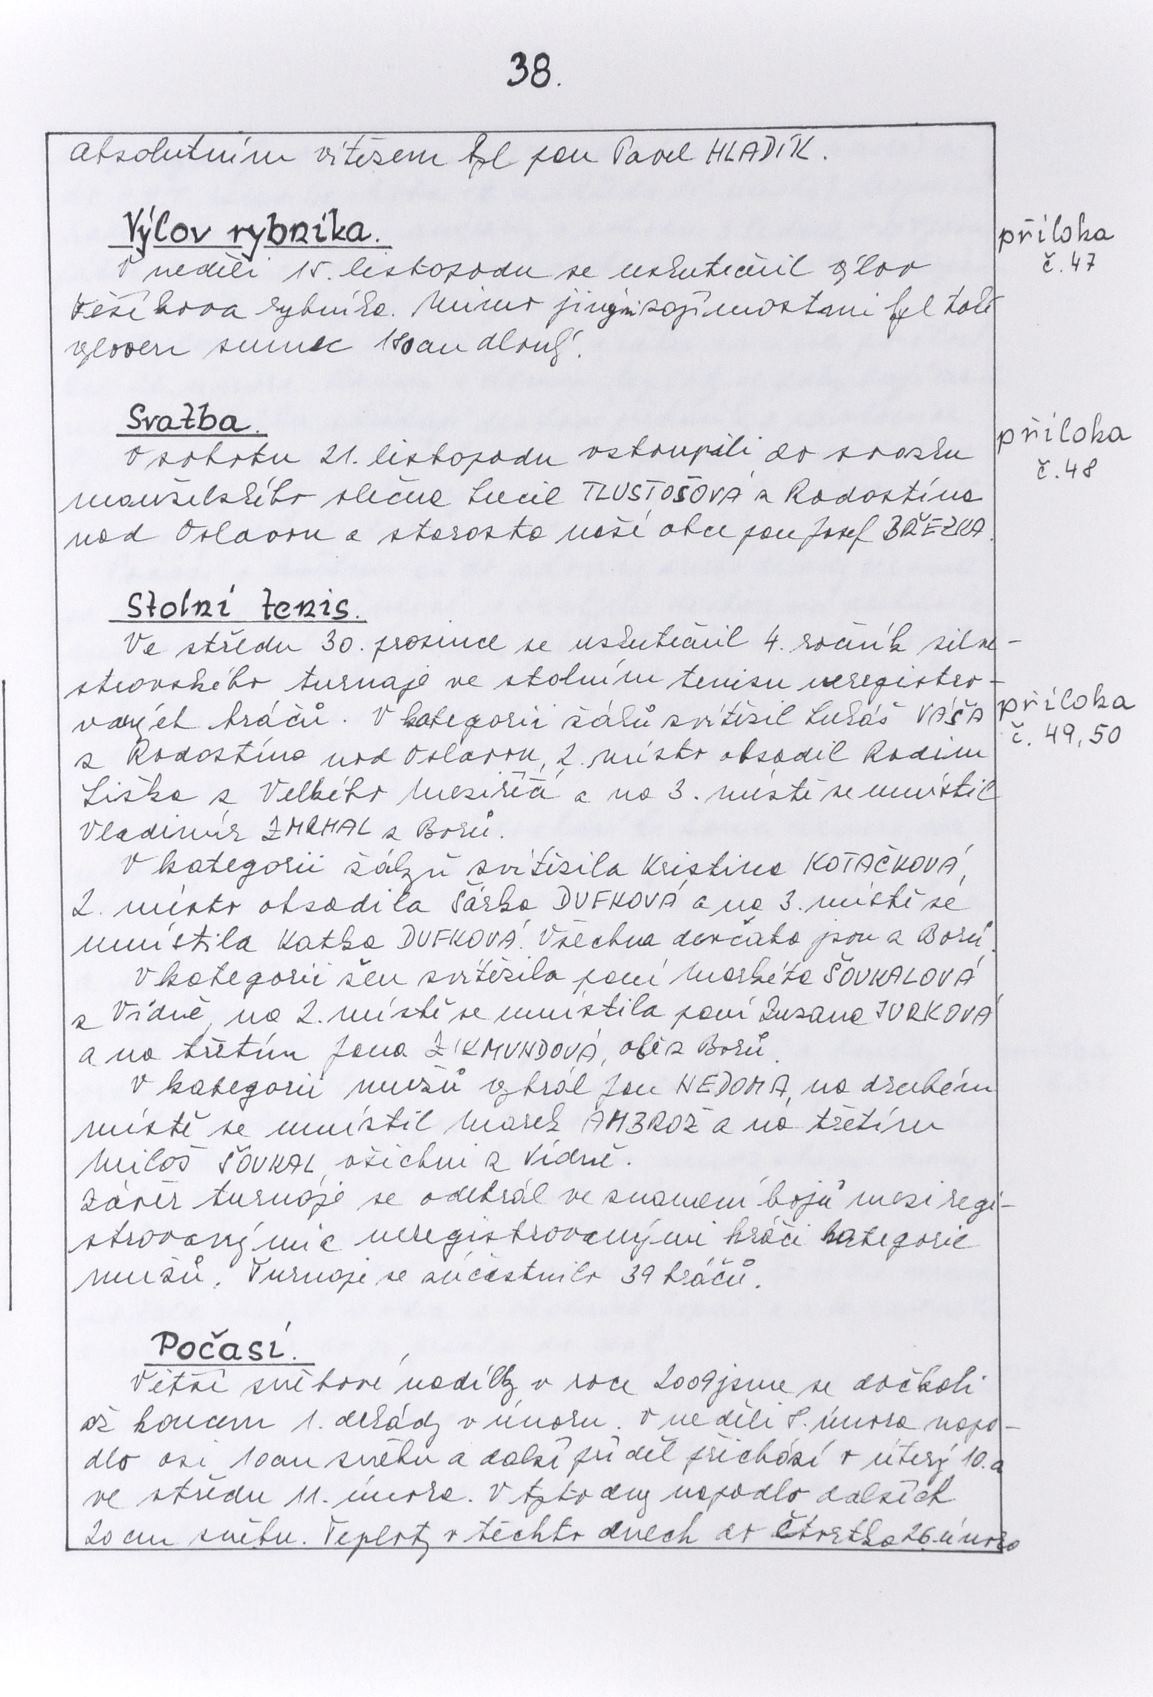 38.
absolutním vítězem byl pan Pavel HLADÍK.
Výlov rybníka.
příloha
č. 47
V neděli 15. listopadu se uskutečnil výlov
rybníka. Mimo jiným zajímavostmi byl také
vyloven sumec dlouhý.
Svatba.
příloha
č. 48
V sobotu 21. listopadu vstoupili do svazku
manželského slečna Lucie TLUSTOŠOVÁ z Radostína
nad Oslavou a starosta naší obce pan Josef BŘEZKA.
Stolní tenis.
Ve středu 30. prosince se uskutečnil 4. ročník silve-
strovského turnaje ve stolním tenisu neregistro-
vaných hráčů. V kategorii žáků zvítězil Lukáš VÁŠA
příloha
č. 49, 50
z Radostína nad Oslavou, 2. místo obsadil Radim
Liška z Velkého Meziříčí a na 3. místě se umístil
Vladimír ZMRHAL z Borů.
V kategorii žákyň zvítězila Kristina KOTAČKOVÁ,
2. místo obsadila Šárka DUFKOVÁ a na 3. místě se
umístila Katka DUFKOVÁ. Všechna děvčata jsou z Borů.
V kategorii žen zvítězila paní Markéta ŠOUKALOVÁ
z Vídně, na 2. místě se umístila paní Zuzana JURKOVÁ
a na třetím Jana ZIKMUNDOVÁ, obě z Borů.
V kategorii mužů vyhrál Jan NEDOMA, na druhém
místě se umístil Marek AMBROŽ a na třetím
Miloš ŠOUKAL, všichni z Vídně.
Závěr turnaje se odehrál ve znamení bojů mezi regi-
strovanými a neregistrovanými hráči kategorie
mužů. Turnaje se zúčastnilo 39 hráčů.
Počasí.
Větší sněhové nadílky v roce 2009 jsme se dočkali
až koncem 1. dekády v únoru. V neděli 8. února napa-
dlo asi 10 cm sněhu a další příděl přichází v úterý 10. a
ve středu 11. února. V tyto dny napadlo dalších
20 cm sněhu. Teploty v těchto dnech do čtvrtka 26. února